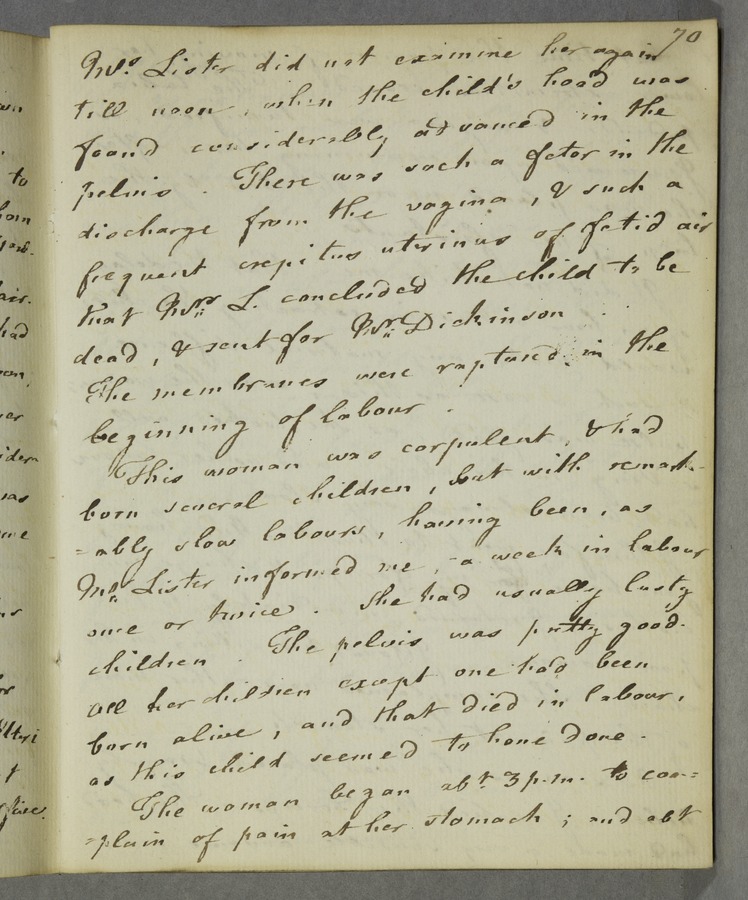 70
Mrs. Lister did not examine her again
till noon, when the child's head was
found considerably advanced in the
pelvis. There was such a fetor in the
discharge from the vagina, & such a
frequent crepitus uterinus of fetid air
that Mrs. L. concluded the child to be
dead, & sent for Mr. Dickinson
The membranes were ruptured in the
beginning of labour.
This woman was corpulent, & had
born several children, but with remark-
=ably slow labours, having been, as
Mrs. Lister informed me, a week in labour
once or twice. She had usually lusty
children. The pelvis was pretty good.
All her children except one had been
born alive, and that died in labour,
as this child seemed to have done.
The woman began abt. 3 p.m. to com=
=plain of pain at her stomach; and abt